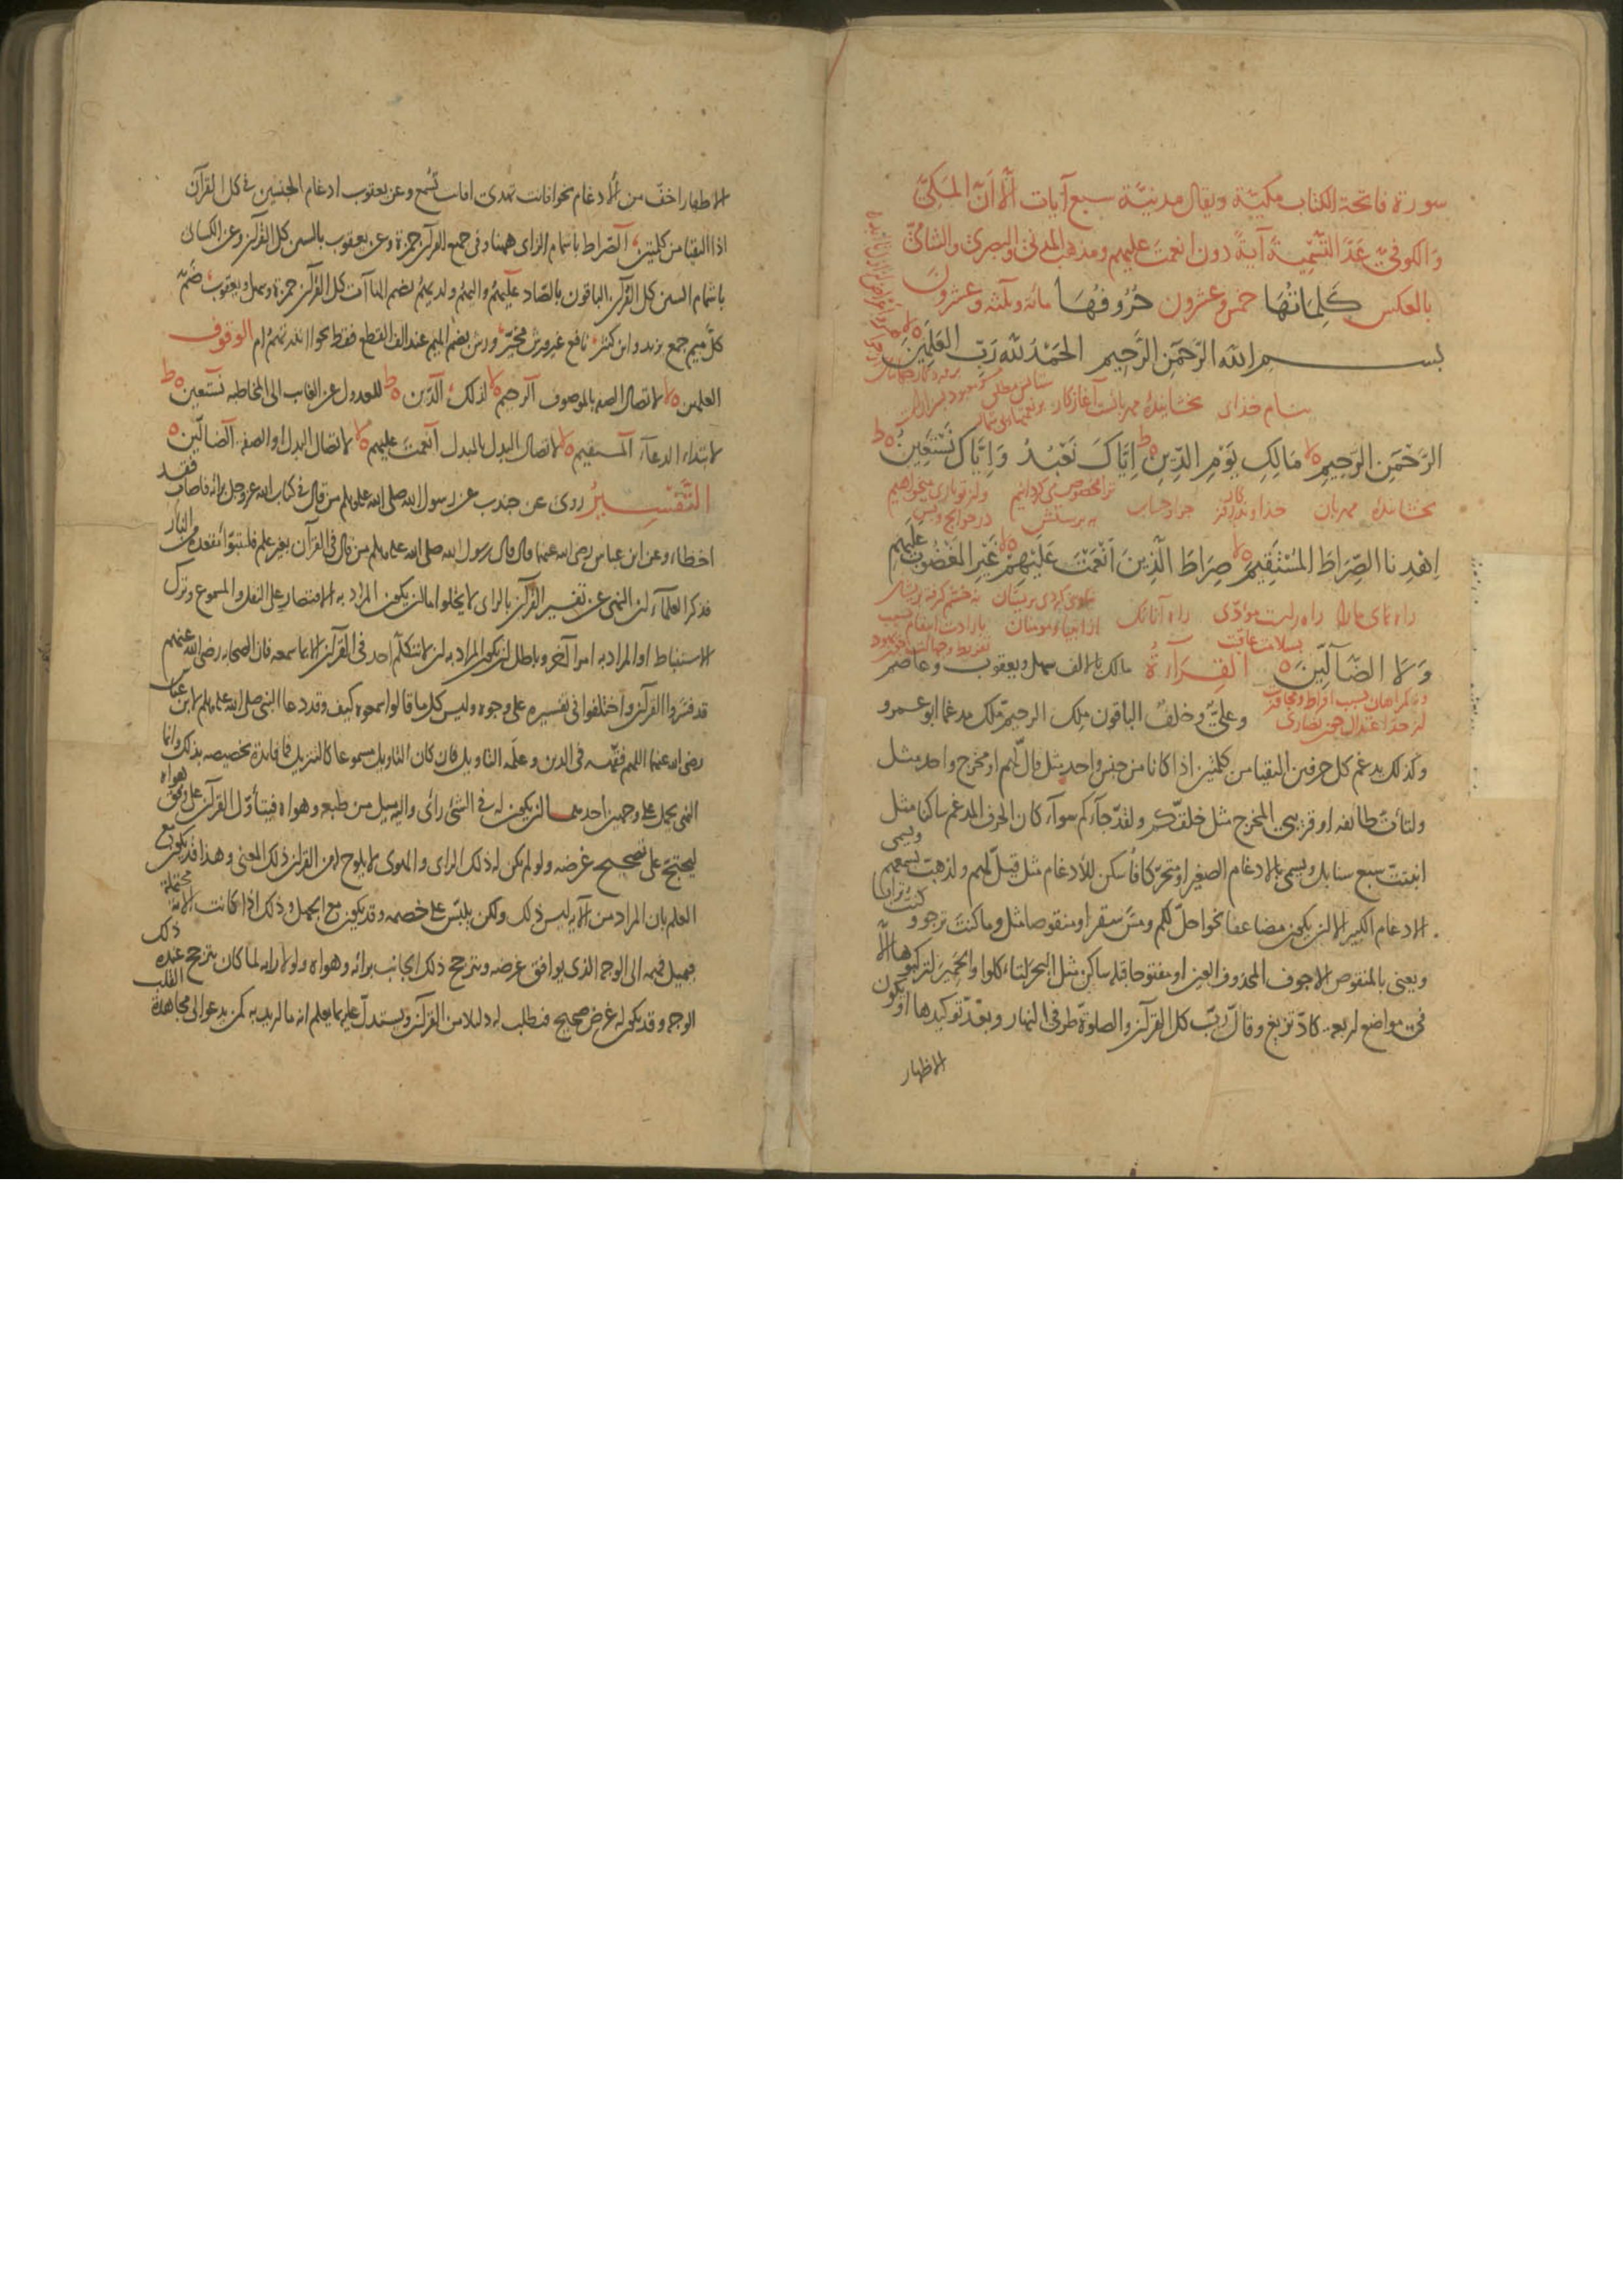 سورة فاتحة الكتاب مكية ويقال مدنية سبع آيات الّا انّ المكىّ
والكوفىّ عدّ التسمية آيةً دون انعمت عليهم ومذهب المدنىّ والبصرىّ والشامىّ
بالعكس كلماتها خمس وعشرون حروفها مائة وثلثة وعشرون
بسم الله الرّحمن الرّحيم الحمد لله ربّ العلمين
بنام خدای بخشاينده مهربانست آغاز کار
الرّحمن الرّحيم مالك يوم الدّين ايّاك نعبد وايّاك نستعين
بخشاينده مهربان خداوند روز جزا وحساب
اهدنا الصّراط المستقيم صراط الّذين انعمت عليهم غير المغضوب عليهم
راه نمای مارا راه راست راه آنانک
ولا الضّآلّين القرآءة مالك بالالف سهل ويعقوب وعاصم
وعلىّ وخلف الباقون ملك الرحيم ملك مدغما ابو عمرو
وكذلك يدغم كل حرفين التقيا من كلمتين اذا كانا من جنس واحد مثل قال لهم او مخرج واحد مثل
ولتأت طائفة او قريبى المخرج مثل خلقكم ولقد جآءكم سوآء كان الحرف المدغم ساكنا مثل
انبتت سبع سنابل ويسمى بالادغام الصغير او متحركا فأسكن للادغام مثل قيل لهم ولذهب بسمعهم ويسمى
الادغام الكبير الا ان يكون مضاعفا نحو احل لكم ومس سقر او منقوصا مثل وما كنت ترجو و كنت ترابا
ويعنى بالمنقوص الاجوف المحذوف العين او مفتوحا قبله ساكن مثل البحر لتأكلوا والحمير لتركبوها الّا
فى مواضع اربعة كاد تزيغ وقال رب كل القرآن والصلوة طرفى النهار وبعد توكيدها او يكون
الاظهار
الاظهار اخفّ من الادغام نحو افانت تهدى افانت تسمع وعن يعقوب ادغام الجنسين فى كل القرآن
اذا التقيا من كلمتين الصّراط باشمام الزاى ههنا وفى جميع القرآن حمزة وعن يعقوب بالسين كل القرآن وعن الكسائى
باشمام السين كل القرآن الباقون بالصّاد عليهم واليهم ولديهم بضم الهاآت كل القرآن حمزة وسهل ويعقوب ضمّ
كلّ ميم جمع يزيد وابن كثير نافع غير ورش مخيّر ورش بضم الميم عند الف القطع فقط نحو أانذرتهم ام الوقوف
العلمين لا لاتصال الصفة بالموصوف الرحيم لا لذلك الدّين ط للعدول عن الغايب الى المخاطبة نستعين ط
لابتداء الدعآء المستقيم لا لاتصال البدل بالمبدل انعمت عليهم لا لاتصال البدل او الصفة الضالّين
التّفسير روى عن جندب عن رسول الله صلى الله عليه وسلم من قال فى كتاب الله عز وجل برائه فاصاب فقد
اخطاء وعن ابن عباس رضى الله عنهما قال قال رسول الله صلى الله عليه وسلم من قال فى القرآن بغير علم فليتبوّأ مقعده من النار
فذكر العلمآء ان النهى عن تفسير القرآن بالراى لا يخلو اما ان يكون المراد به الاقتصار على النقل والمسموع وترك
الاستنباط او المراد به امرا آخر وباطل ان يكون المراد به ان لا يتكلم احد فى القرآن الا بما سمعه فان الصحابة رضى الله عنهم
قد فسّروا القرآن واختلفوا فى تفسيره على وجوه وليس كل ما قالوا سمعوه كيف وقد دعا النبى صلى الله عليه وسلم لابن عباس
رضى الله عنهما اللهم فقّهه فى الدين وعلّمه التاويل فان كان التاويل مسموعا كالتنزيل فما فائدة تخصيصه بذلك وانما
النهى يحمل على وجهين احدهما ان يكون له فى الشئ رأى واليه ميل من طبعه وهواه فيتأوّل القرآن على وفق هواه
ليحتجّ على تصحيح غرضه ولو لم يكن له ذلك الراى والهوى لا يلوح له من القرآن ذلك المعنى وهذا قد يكون مع
العلم بان المراد من الآية ليس ذلك ولكن يلبّس على خصمه وقد يكون مع الجهل وذلك اذا كانت الآية محتملة
فيميل فهمه الى الوجه الذى يوافق غرضه ويترجح ذلك الجانب برائه وهواه ولولا رايه لما كان يترجح عنده ذلك
الوجه وقد يكون له غرض صحيح فيطلب له دليلا من القرآن ويستدلّ عليه بما يعلم انه ما اريد به كمن يدعو الى مجاهدة القلب